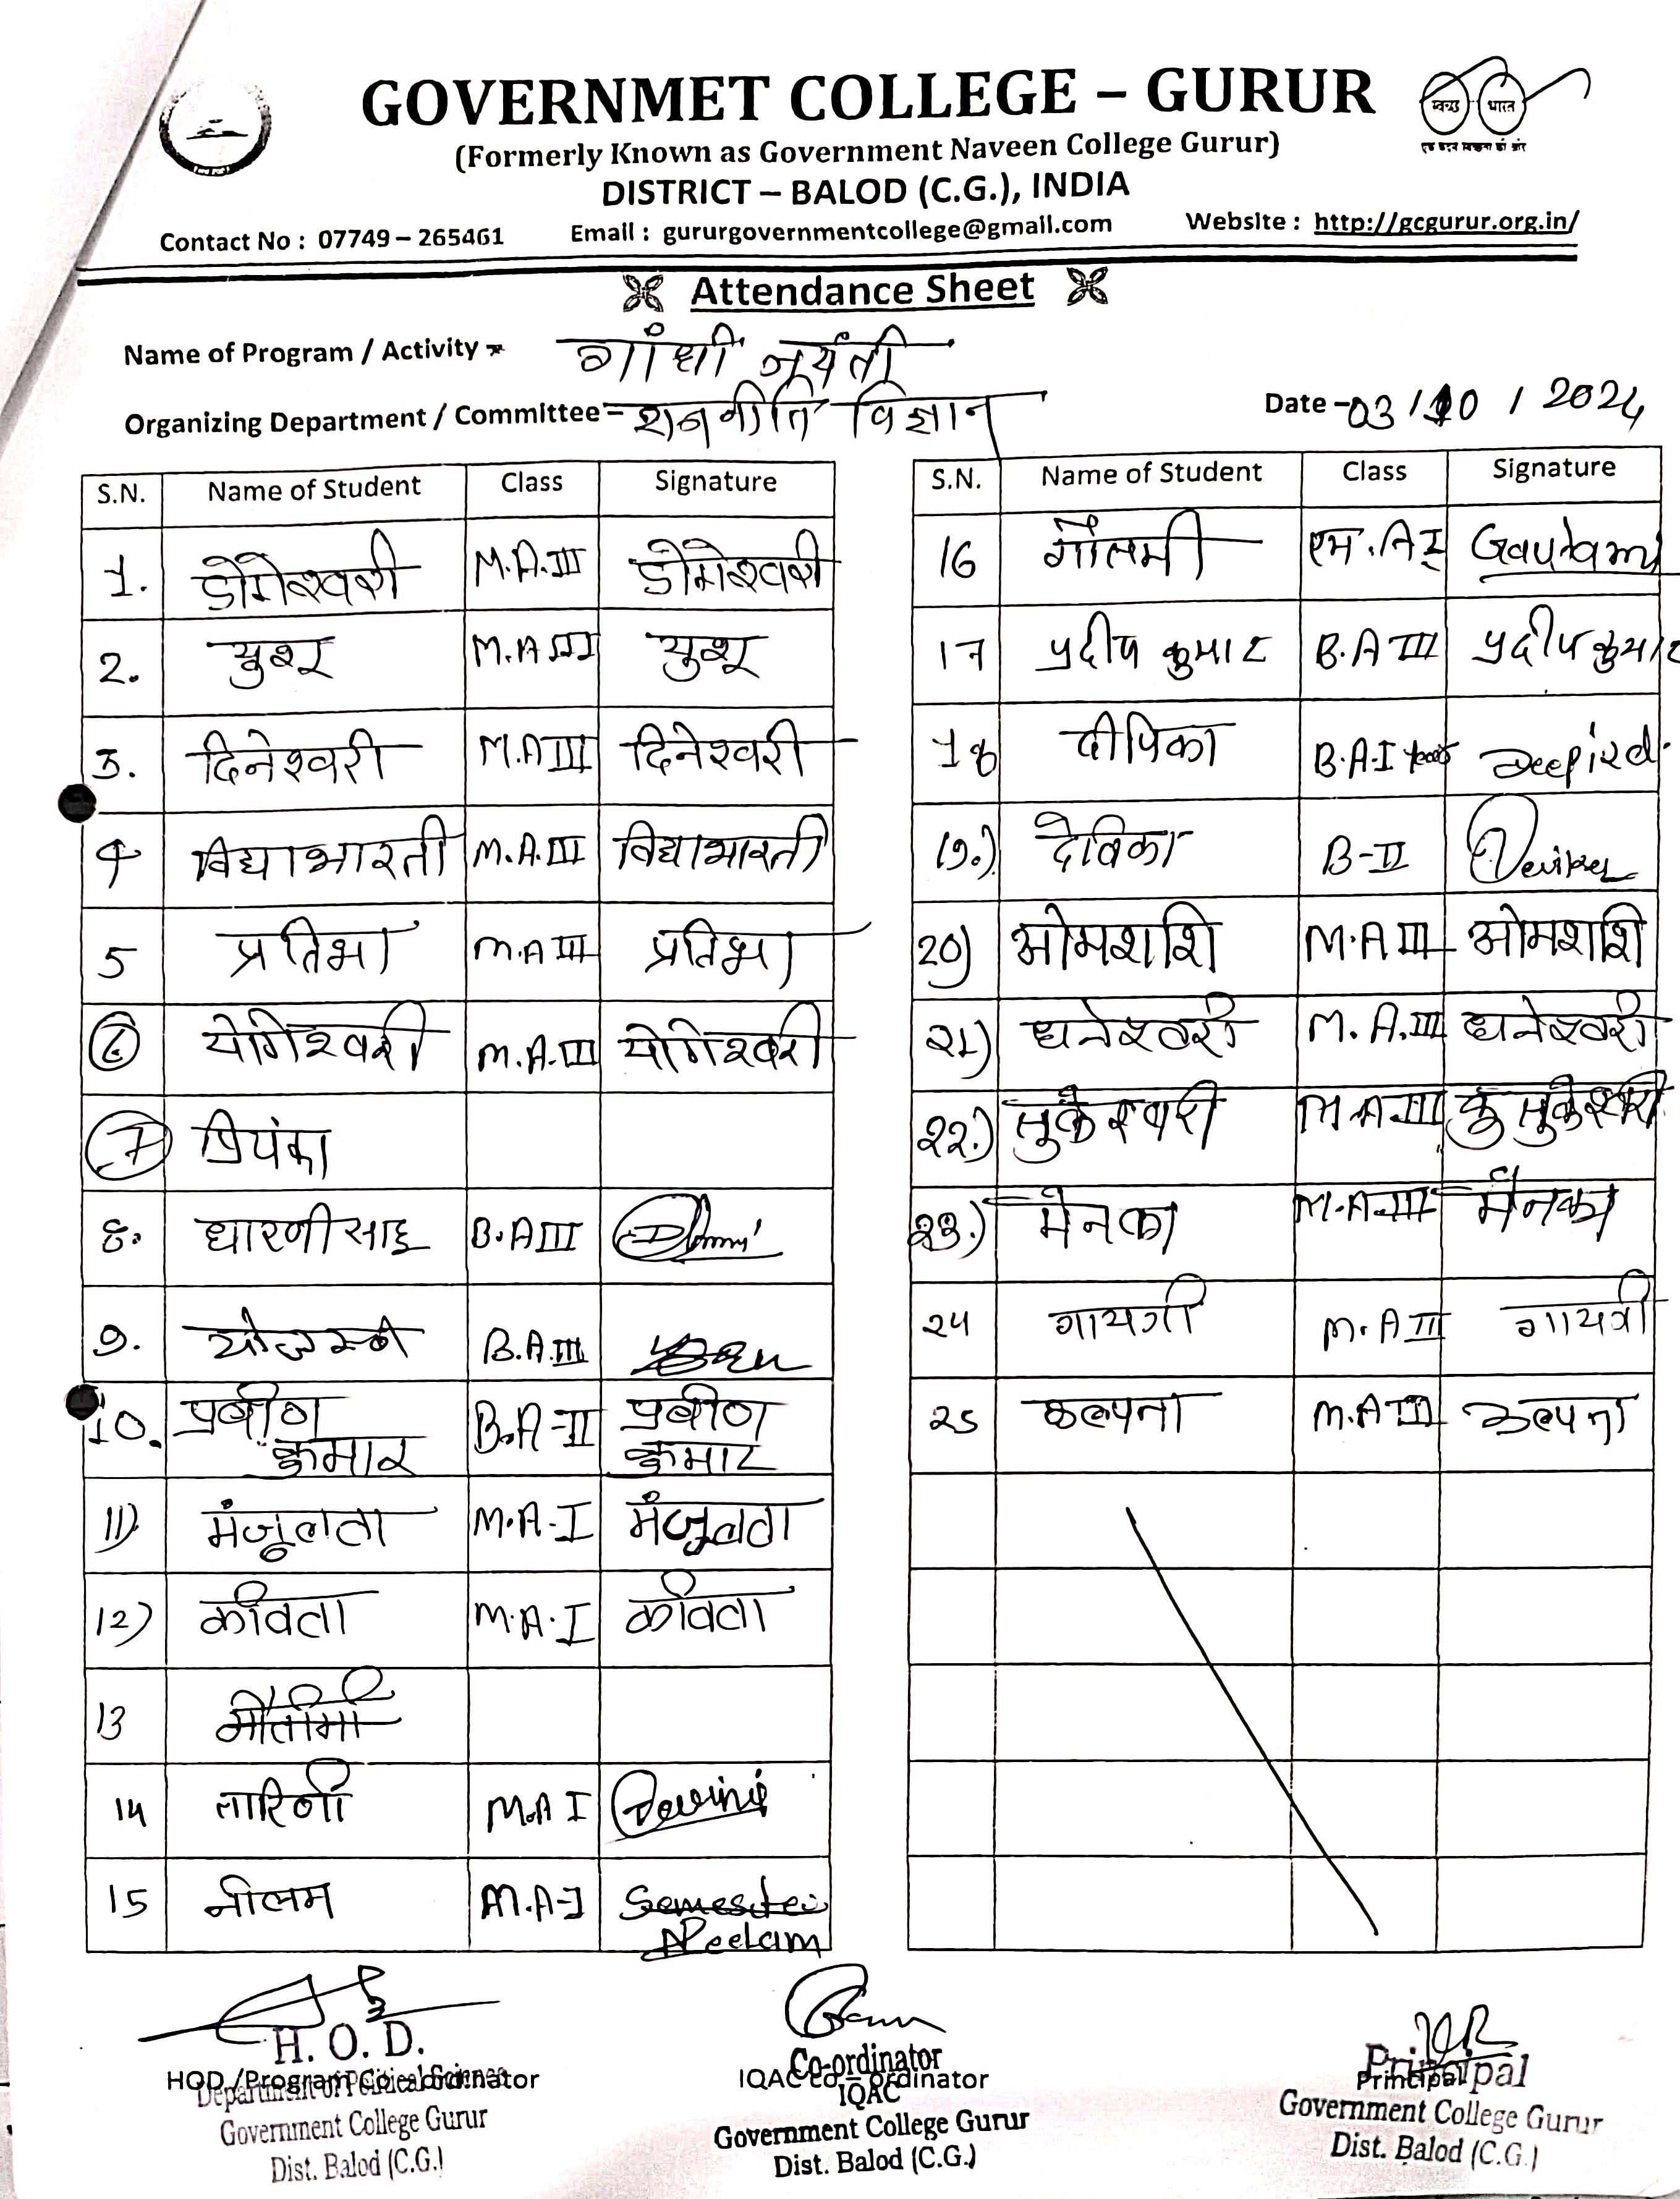 GOVERNMET COLLEGE – GURUR
स्वच्छ भारत
(Formerly Known as Government Naveen College Gurur)
एक कदम स्वच्छता की ओर
DISTRICT – BALOD (C.G.), INDIA
Contact No : 07749 – 265461 Email : gururgovernmentcollege@gmail.com Website : http://gcgurur.org.in/
Attendance Sheet
Name of Program / Activity - गांधी जयंती
Organizing Department / Committee – राजनीति विज्ञान Date - 03 / 10 / 2024
S.N. Name of Student Class Signature
1. डोमेश्वरी M.A.III डोमेश्वरी
2. युशू M.A III युशू
3. दिनेश्वरी M.A III दिनेश्वरी
4 विद्याभारती M.A.III विद्याभारती
5 प्रतिभा M.A III प्रतिभा
6 योगेश्वरी M.A.III योगेश्वरी
7 प्रियंका
8. धारणी साहू B.A III
9. B.A.III
10. प्रवीण कुमार B.A-II प्रवीण कुमार
11) मंजूलता M.A-I मंजूलता
12) कविता M.A.I कविता
13
14 तारिणी M.A I
15 नीलम M.A-I Semester Neelam
S.N. Name of Student Class Signature
16 गौतमी एम.A I Gautami
17 प्रदीप कुमार B.A III प्रदीप कुमार
18 दीपिका B.A-I year
19.) देविका B-II Devika
20) ओमशशि M.A III ओमशशि
21) धनेश्वरी M.A.III धनेश्वरी
22.) सुकेश्वरी M.A.III कु सुकेश्वरी
23.) मेनका M.A.III मेनका
24 गायत्री M.A III गायत्री
25 कल्पना M.A III कल्पना
H. O. D.
HOD /Program Co-ordinator
Department of Political Science
Government College Gurur
Dist. Balod (C.G.)
Co-ordinator
IQAC Co – Ordinator
IQAC
Government College Gurur
Dist. Balod (C.G.)
Principal
Principal
Government College Gurur
Dist. Balod (C.G.)